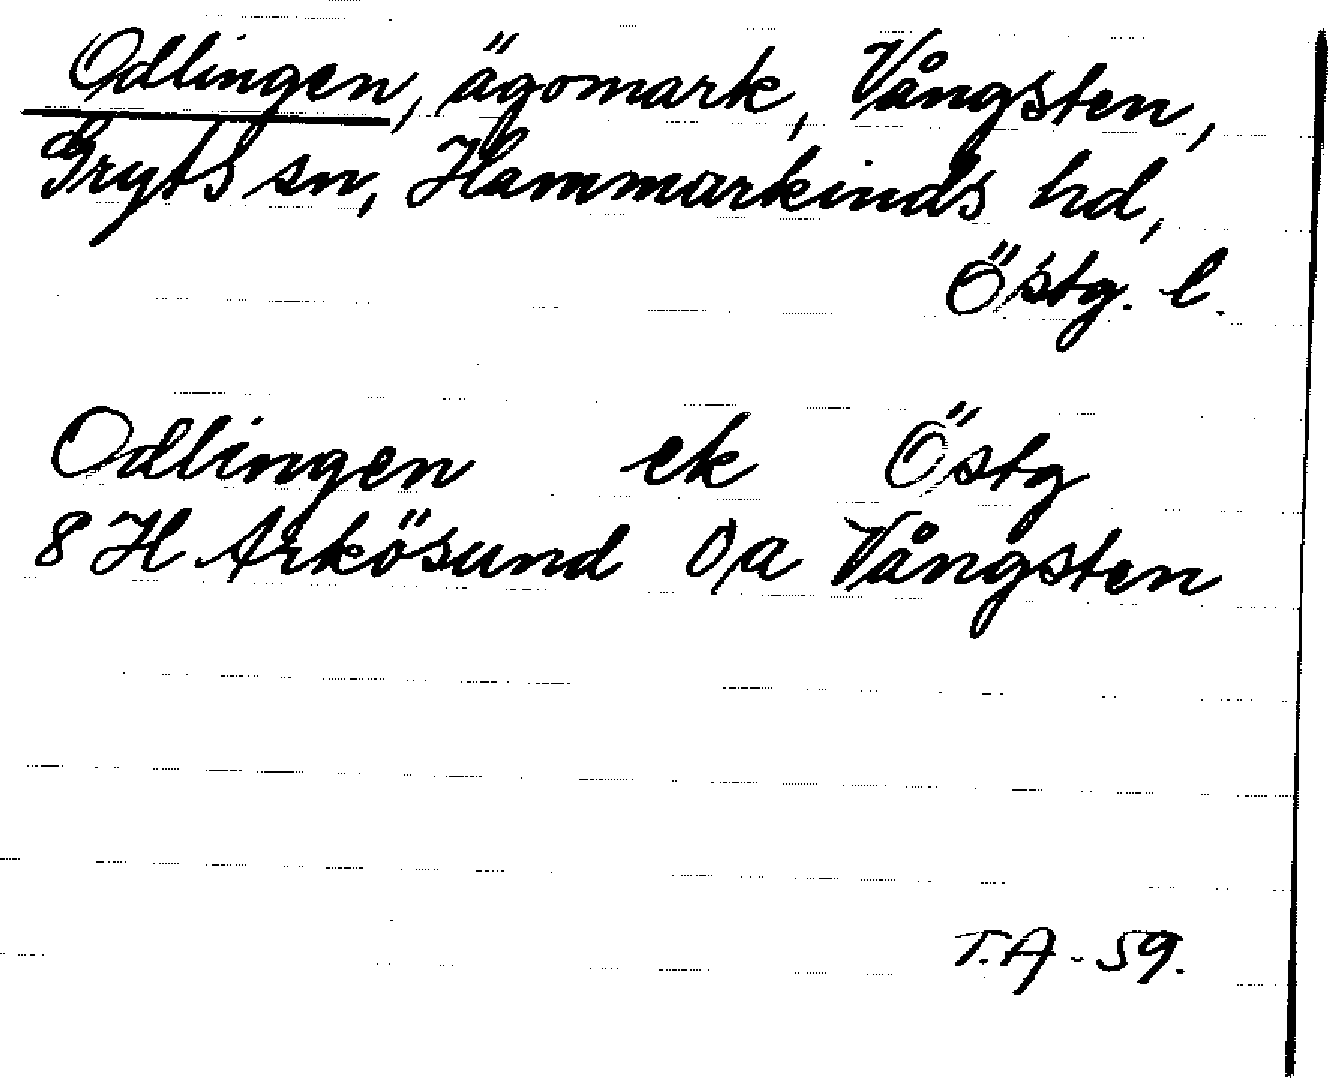 Odlingen, ägomark, Vångsten,
Gryts sn, Hammarkinds hd,
Östg. l.
Odlingen ek Östg
8 H Arkösund o/a Vångsten
T.A - 59.